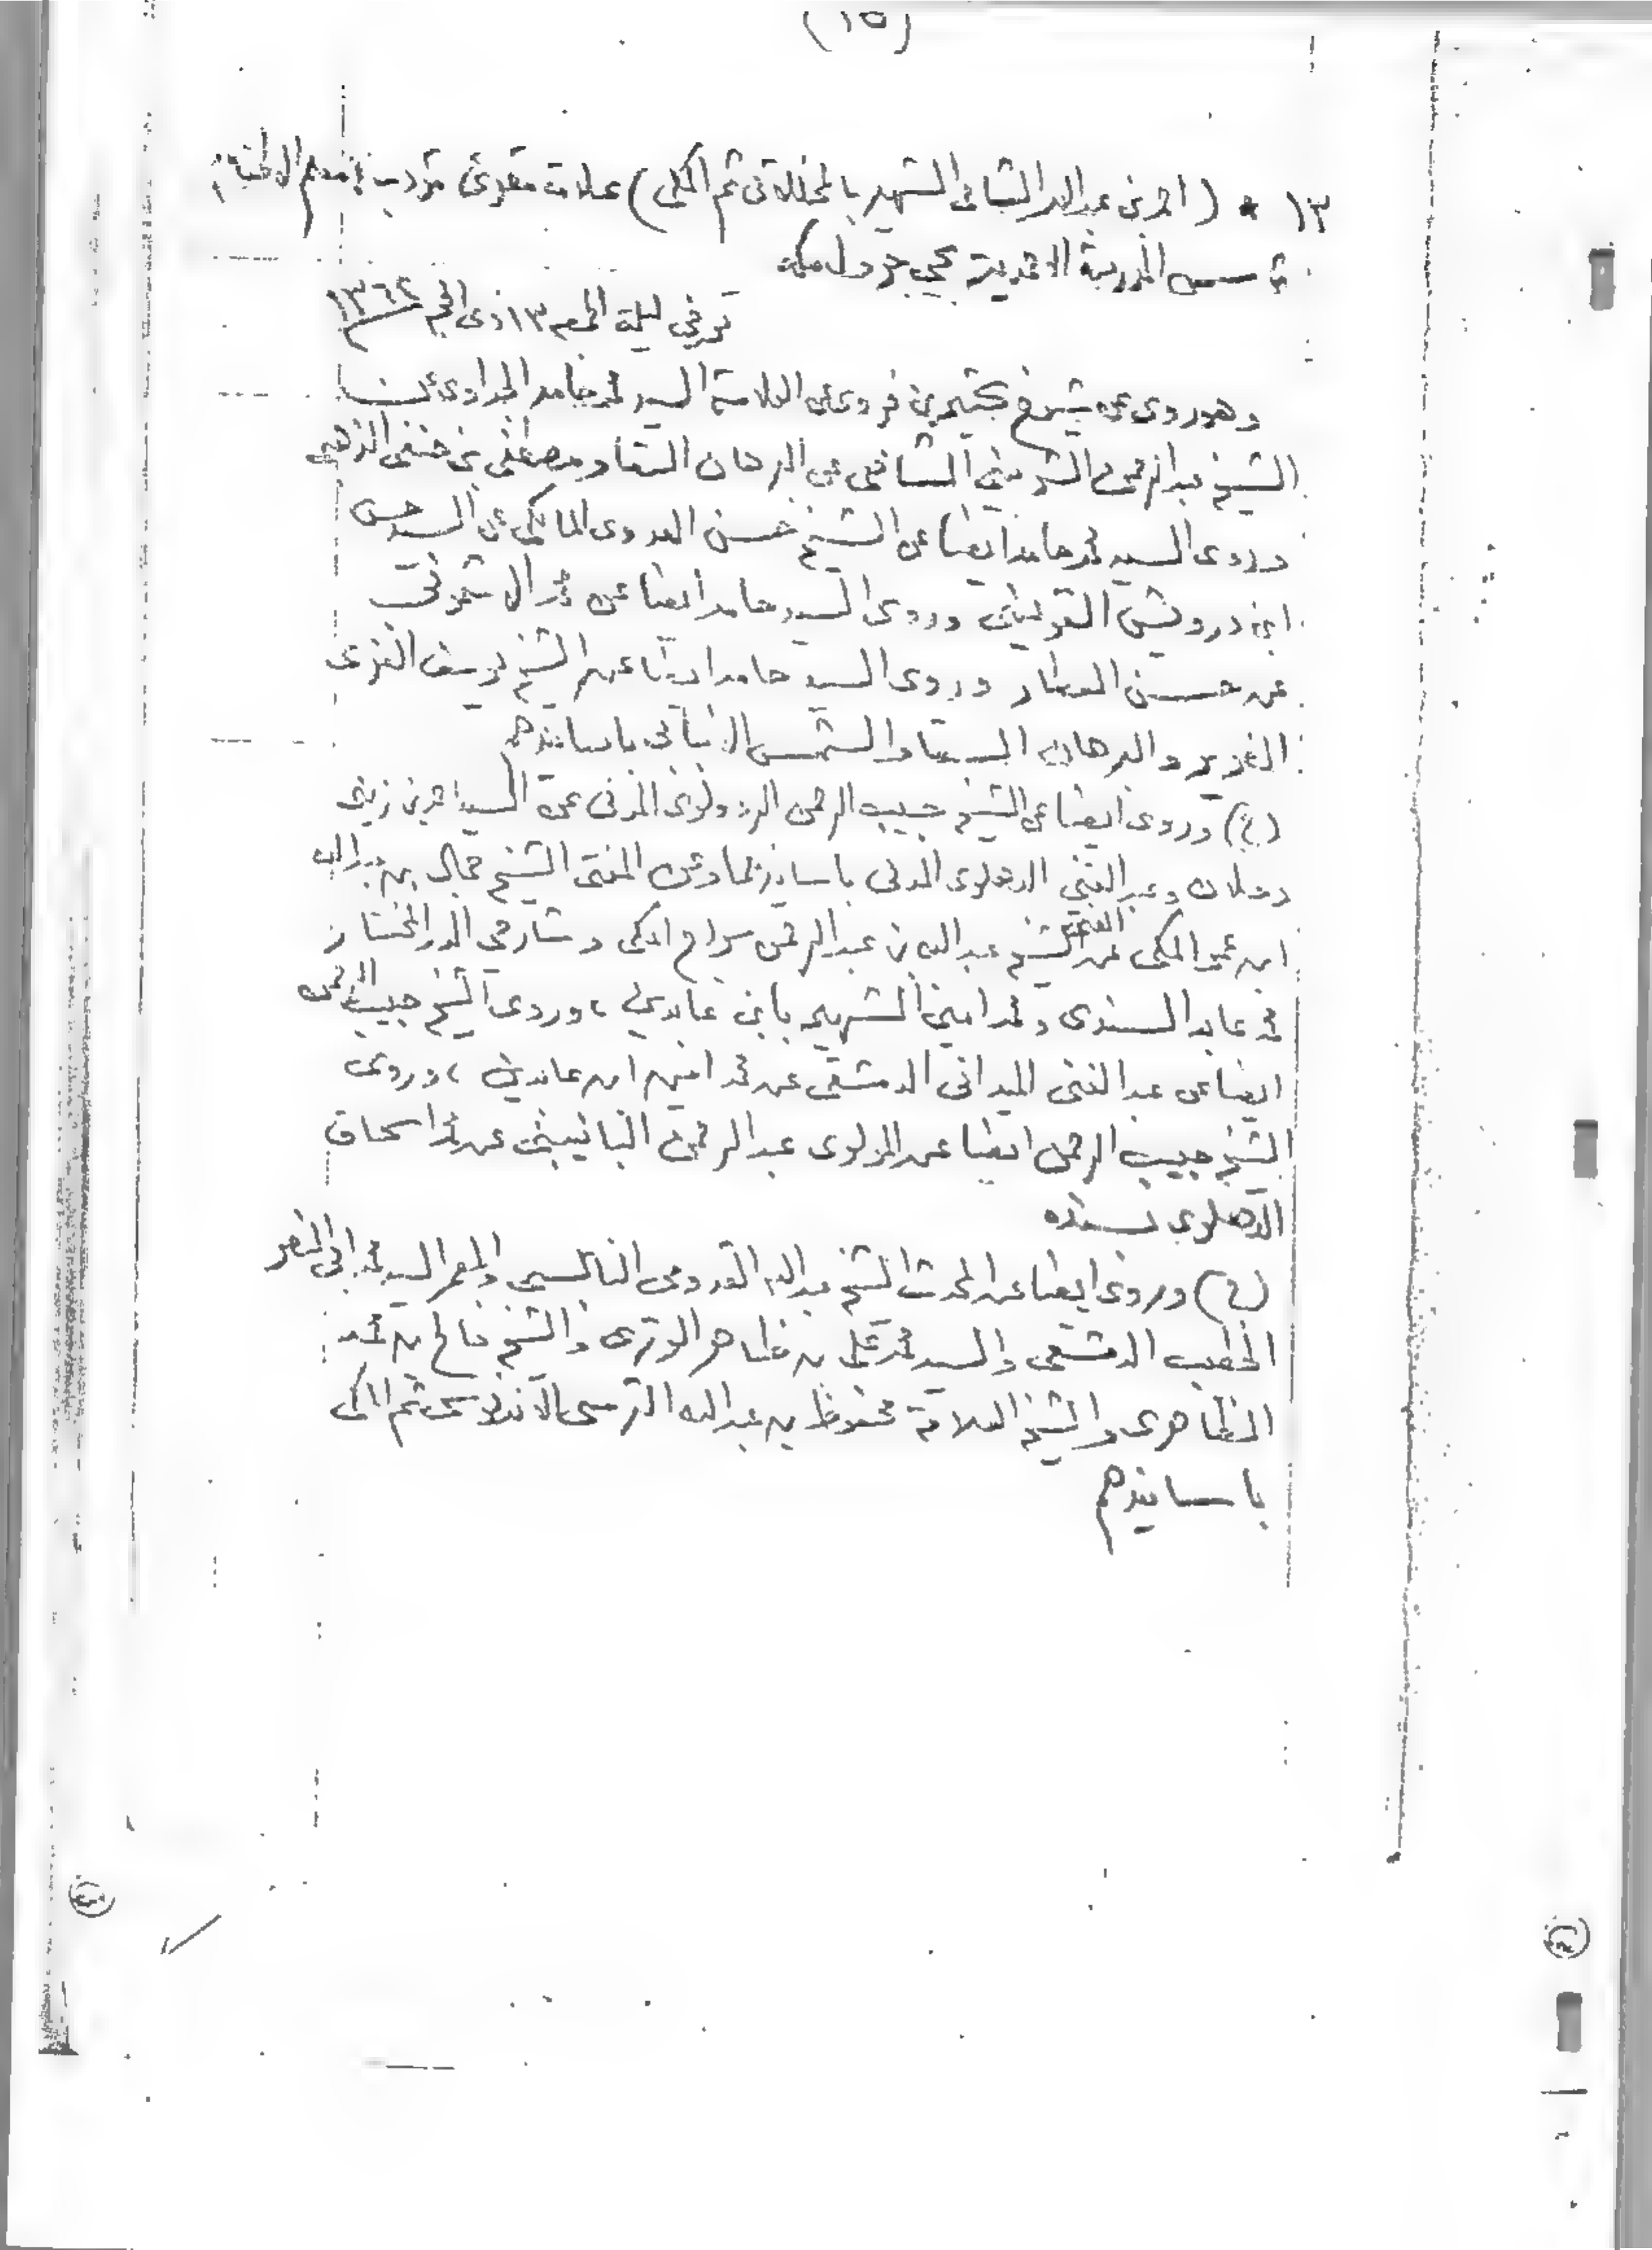 (١٥)
١٣ * (احمد بن عبدالله الشامى الشهير بالمخللاتى ثم المكى) علامة مقرئ مؤدب
مؤسس المدرسة الاحمدية بحي جرول مكة
توفي ليلة الجمعه ١٣ ذى الحجه ١٣٦٢
وهو روى عن شيوخ كثيرين فروى عن العلامة السيد محمد حامد الجداوى عن
الشيخ عبدالرحمن الشربيني الشافعى عن البرهان السقا ومصطفى بن حنفى الذهبى
وروى السيد محمد حامد ايضا عن الشيخ حسن العدوى المالكى عن السيد حسن
ابن درويش القويسنى وروى السيد حامد ايضا عن محمد الاشمونى
عن حسن العطار وروى السيد حامد ايضا عن الشيخ يوسف الغزى
الضرير والبرهان السقا والشمس الانبابى باسانيدهم
(ح) وروى ايضا عن الشيخ حبيب الرحمن الردولوى المدنى عن السيد احمد بن زينى
دحلان وعبد الغنى الدهلوى المدنى باسانيدهما وعن المفتى الشيخ جمال بن عبدالله
ابن عمر المكى عن المفتى الشيخ عبدالله بن عبدالرحمن سراج المكى وشارحى الدر المختار
محمد عابد السندى ومحمد امين الشهير بابن عابدين ، وروى الشيخ حبيب الرحمن
ايضا عن عبد الغنى الميدانى الدمشقى عن محمد امين ابن عابدين ، وروى
الشيخ حبيب الرحمن ايضا عن المولوى عبد الرحمن البانيبتى عن محمد اسحاق
الدهلوى بسنده
(ح) وروى ايضا عن المحدث الشيخ عبد الله القدومى النابلسى والمعمر السيد محمد ابى النصر
الخطيب الدمشقى والسيد محمد على بن ظاهر الوترى والشيخ فالح بن محمد
الظاهرى والشيخ العلامة محفوظ بن عبد الله الترمسى الاندنوسى ثم المكى
باسانيدهم